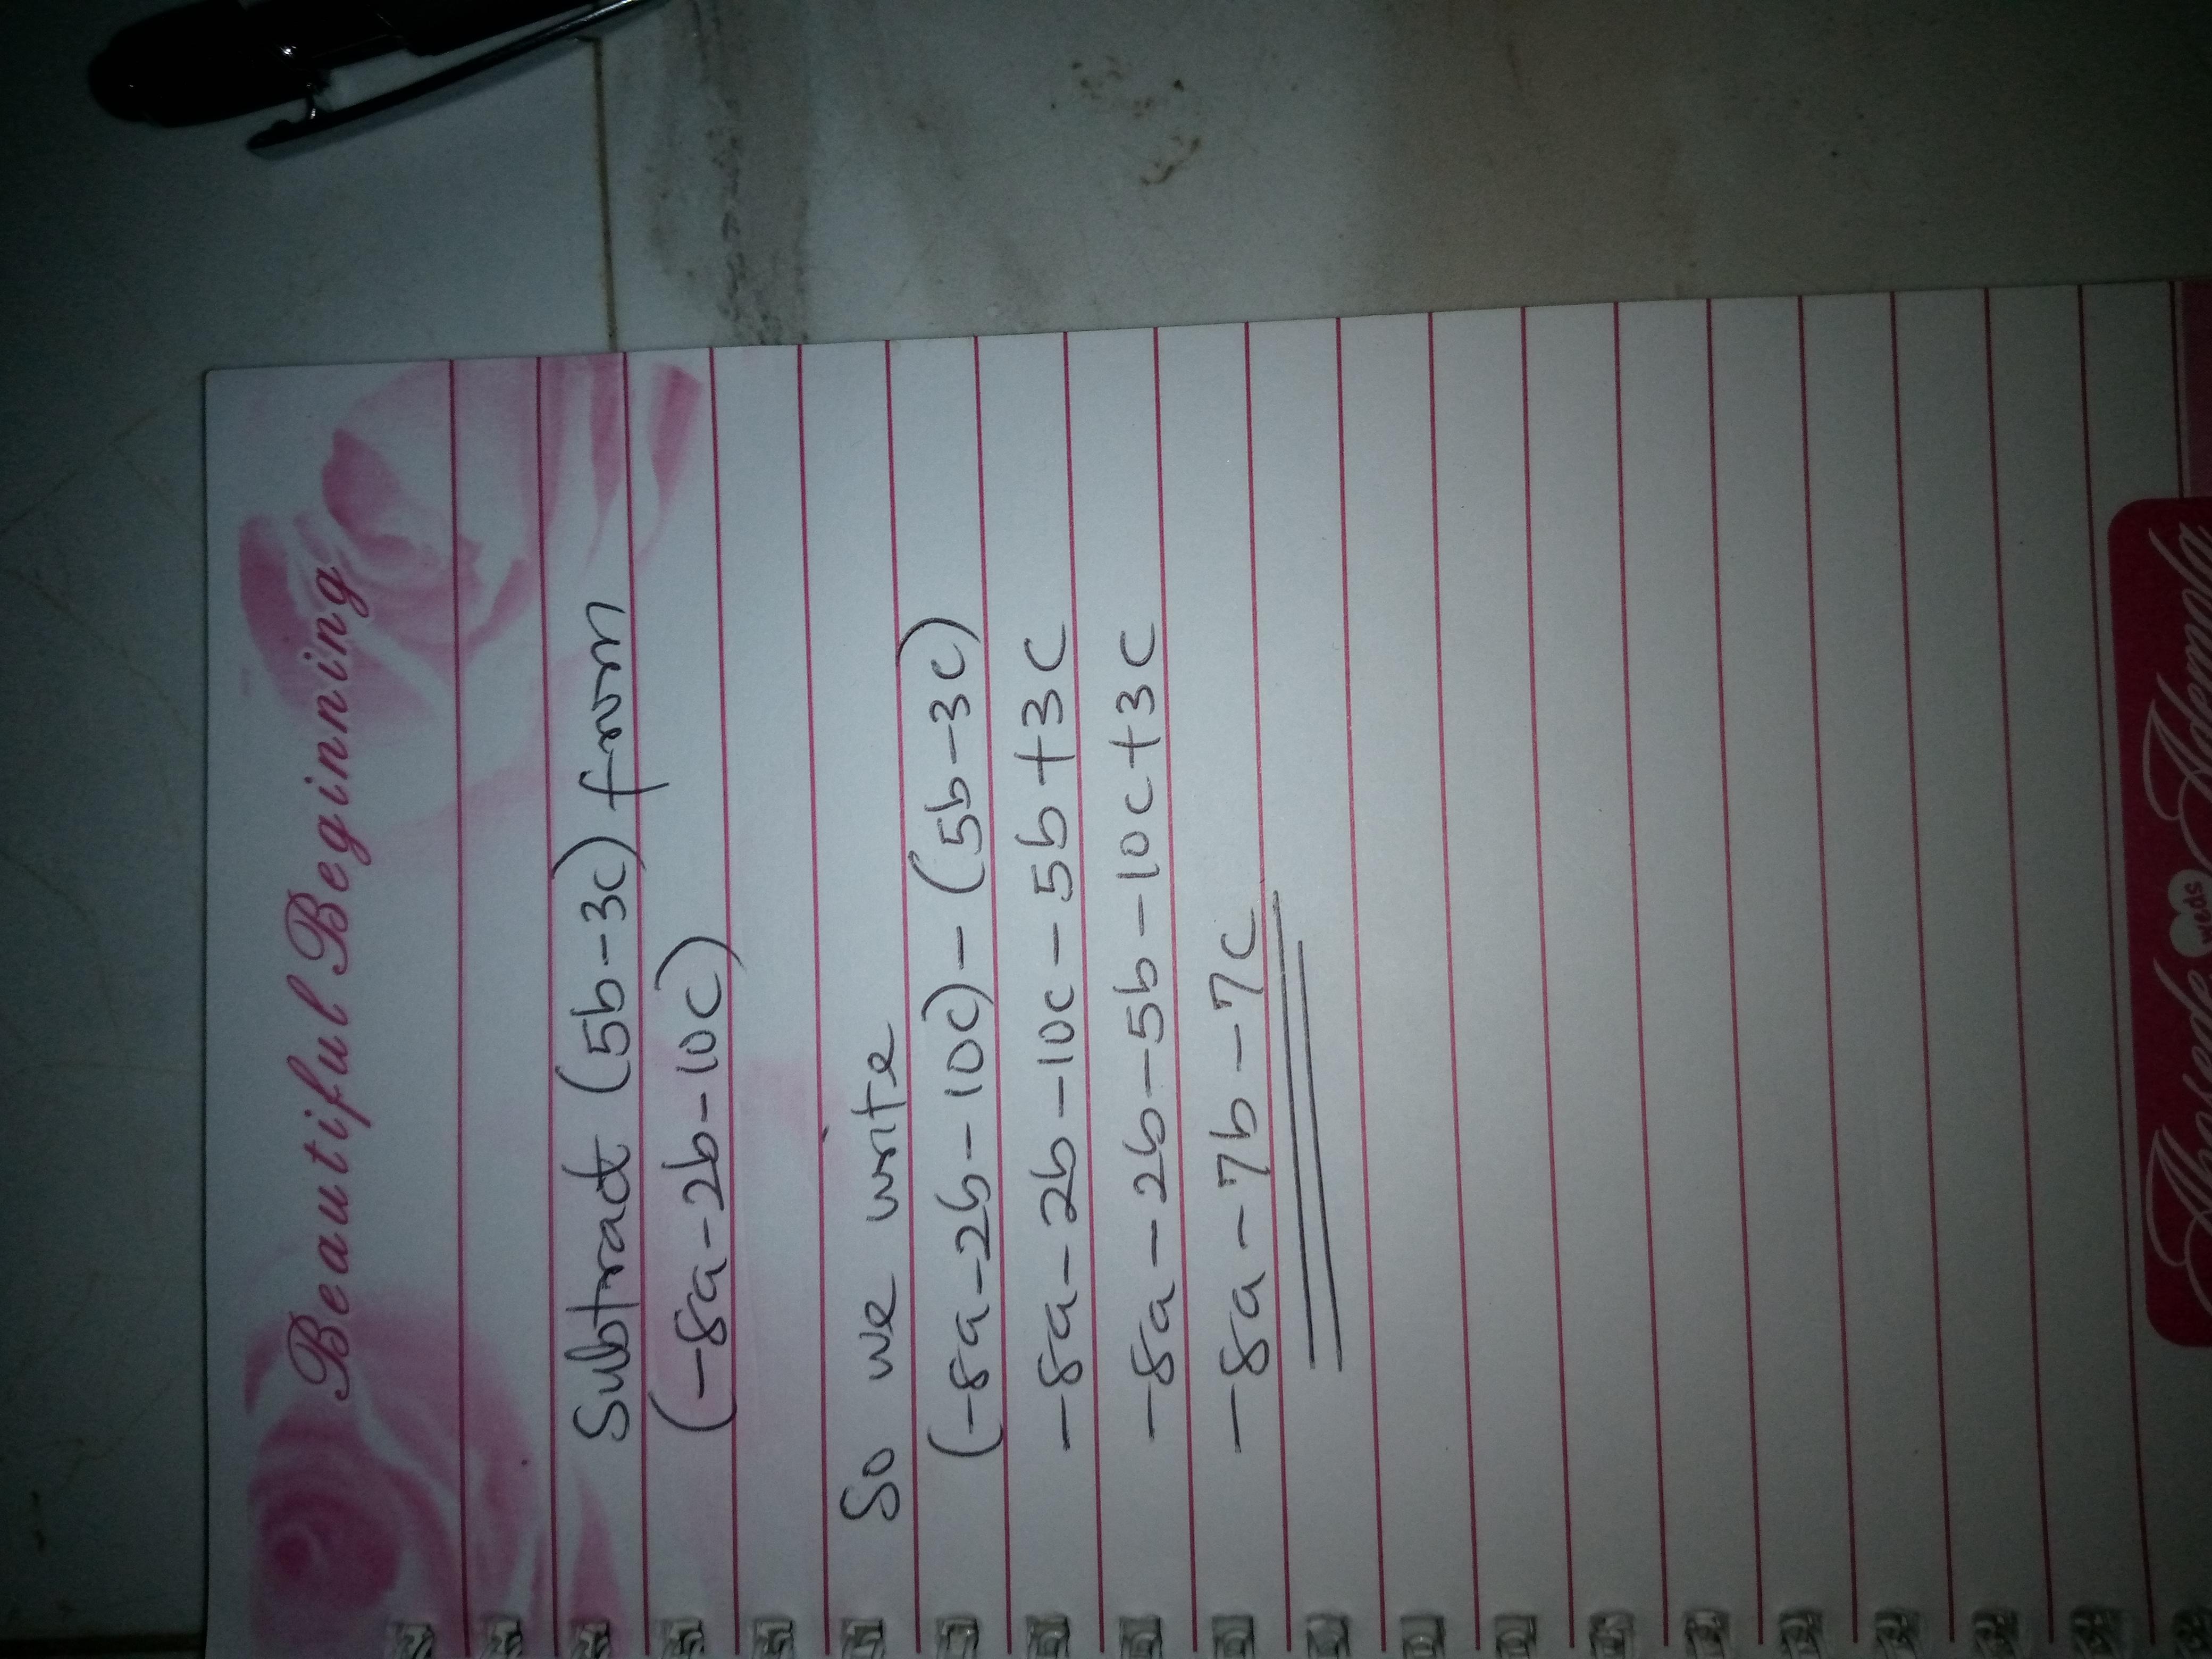 Beautiful Beginning
Subtract (5b-3c) from
(-8a-2b-10c)
So we write
(-8a-2b-10c)-(5b-3c)
-8a-2b-10c-5b+3c
-8a-2b-5b-10c+3c
-8a-7b-7c
weds